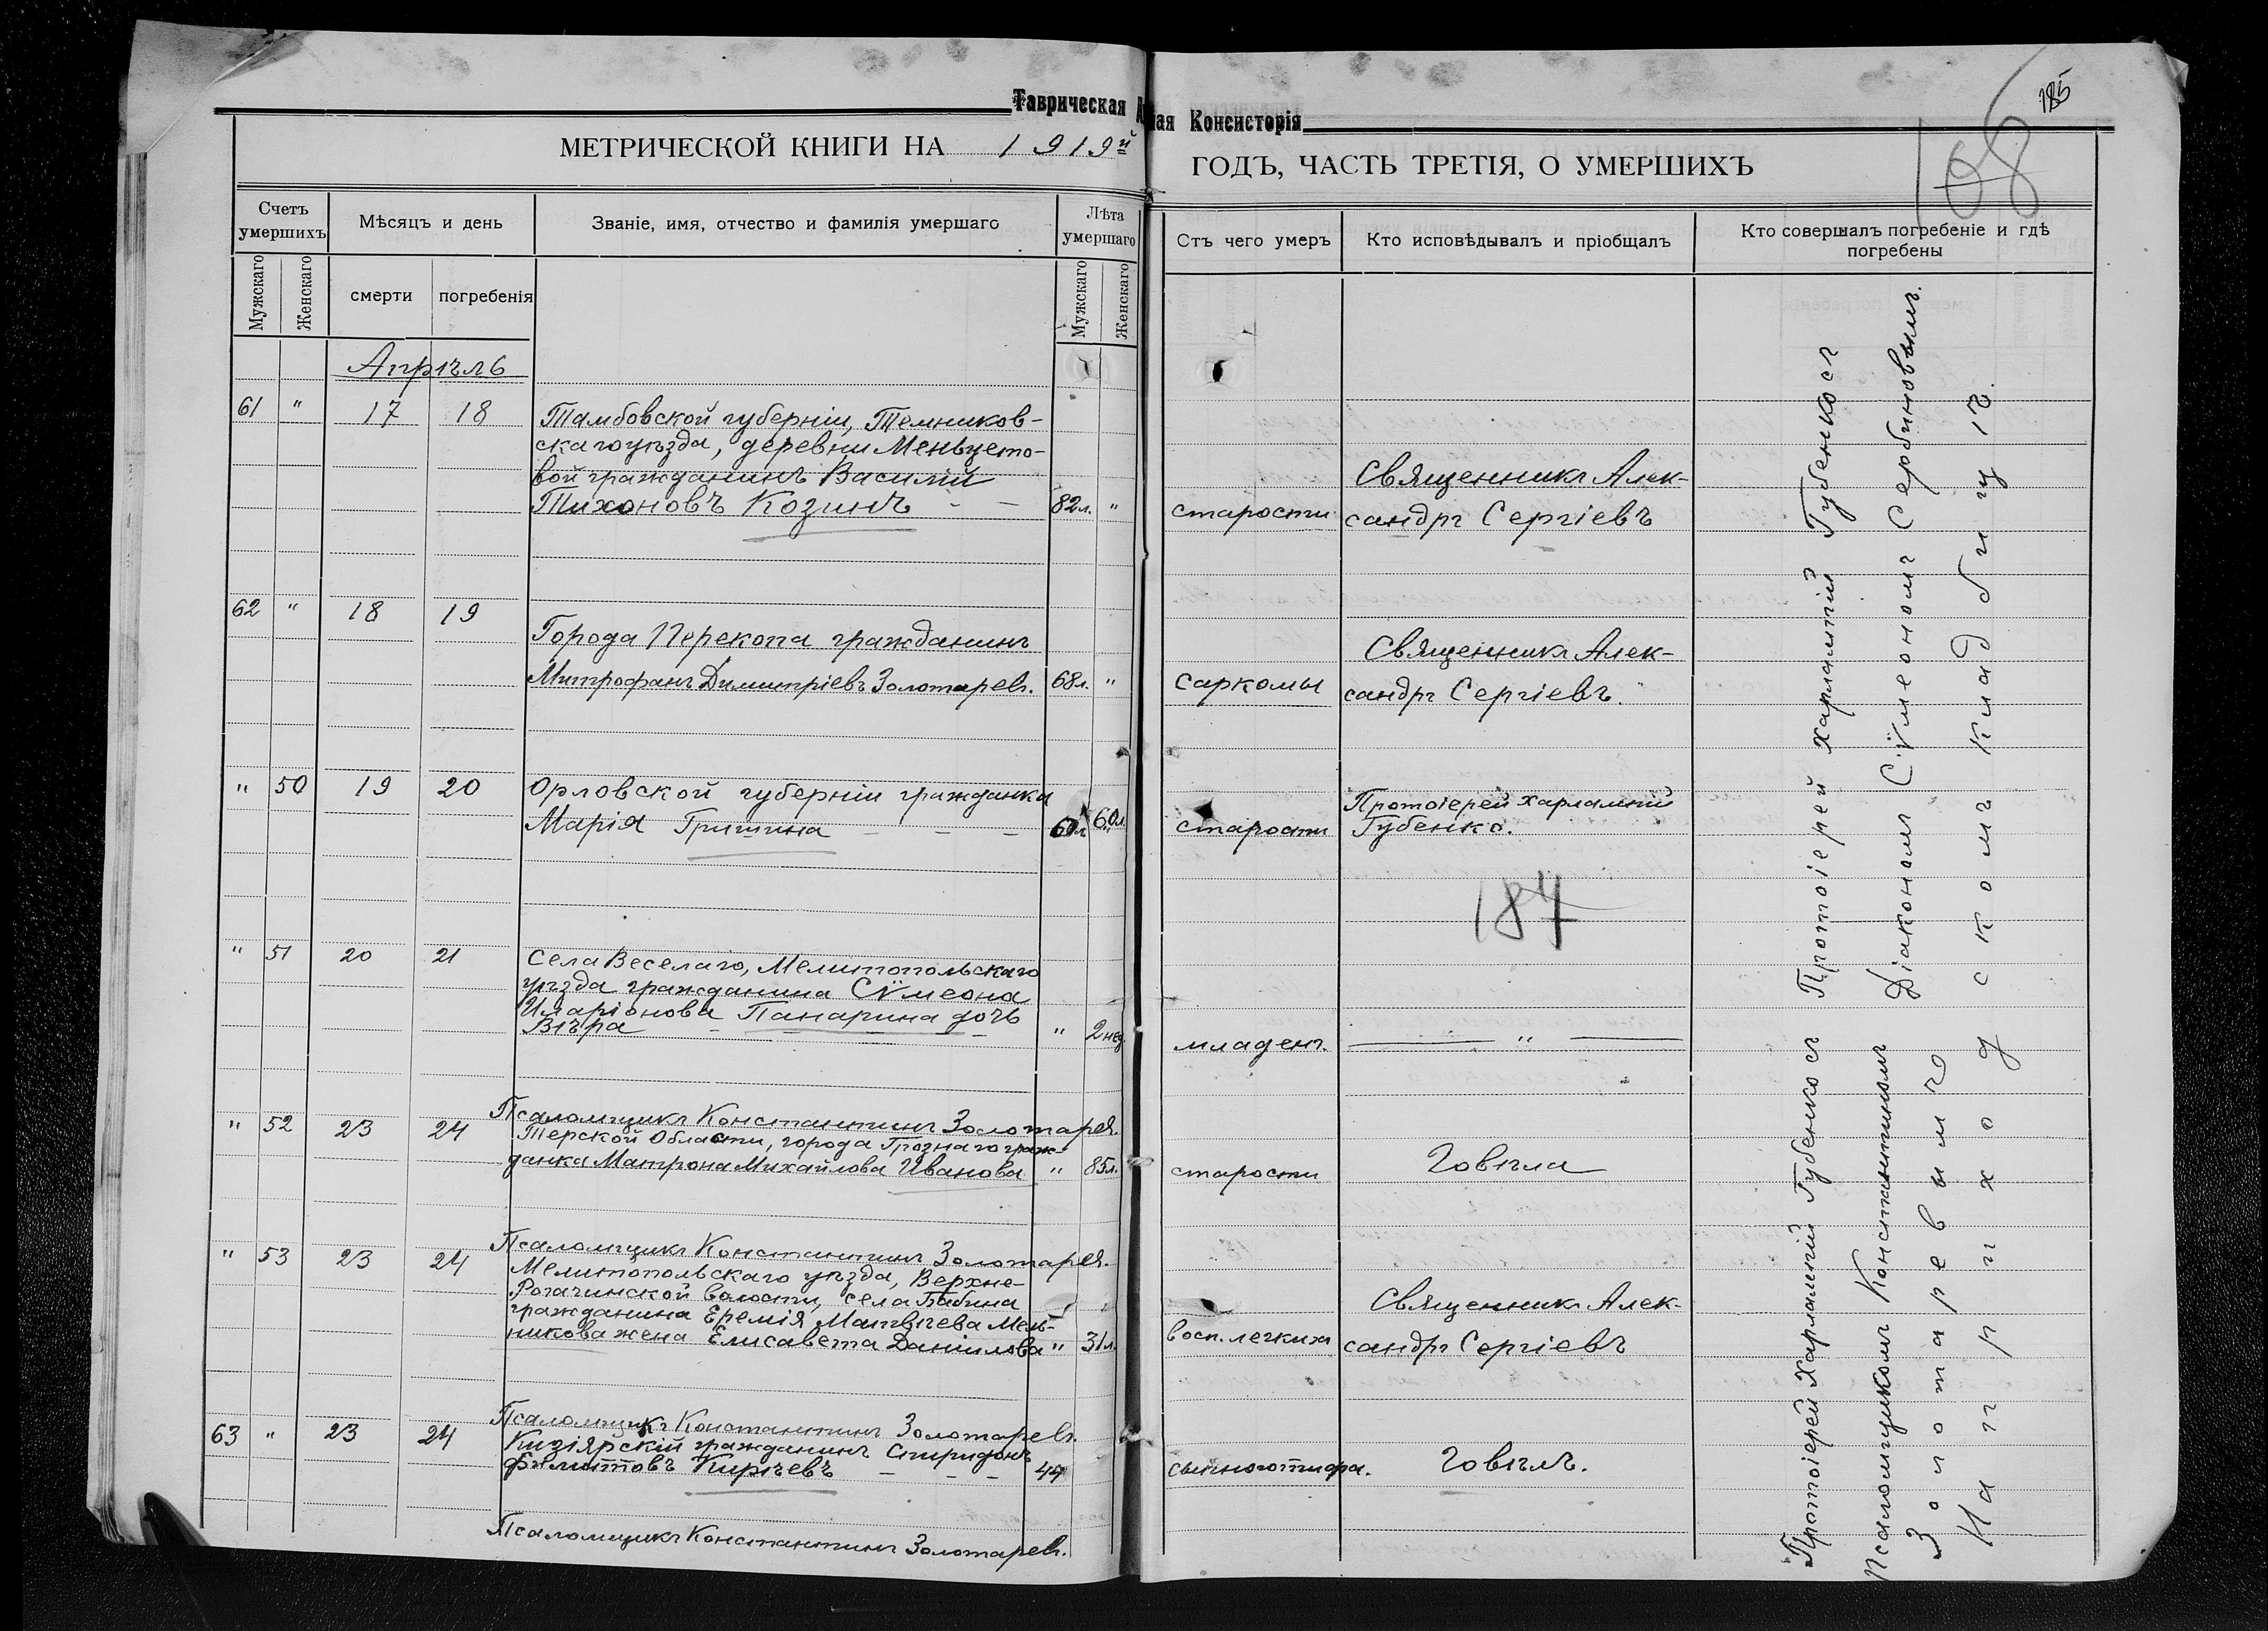 Таврическая
ная Консисторія
185
168
МЕТРИЧЕСКОЙ КНИГИ НА 1919й
ГОДЪ, ЧАСТЬ ТРЕТІЯ, О УМЕРШИХЪ
Счетъ умершихъ
Мѣсяцъ и день
Званіе, имя, отчество и фамилія умершаго
Лѣта умершаго
Стъ чего умеръ
Кто исповѣдывалъ и пріобщалъ
Кто совершалъ погребеніе и гдѣ погребены
Мужскаго
Женскаго
смерти
погребенія
Мужскаго
Женскаго
Апрѣль
61 " 17 18
Тамбовской губерніи, Темников-
скаго уѣзда, деревни
вой гражданинъ Василій
Тихоновъ Козинъ - — 82 л. "
старости
Священникъ Алек-
сандръ Сергіевъ
62 " 18 19
Города Перекопа гражданинъ
Митрофанъ Димитріевъ Золотаревъ. 68 л. "
саркомы
Священникъ Алек-
сандръ Сергіевъ.
" 50 19 20
Орловской губерніи гражданка
Марія Гришина — — — 60 л.
старости
Протоіерей Харлампій
Губенко.
184
" 51 20 21
Села Веселаго, Мелитопольскаго
уѣзда гражданина Сѵмеона
Иларіонова Панарина дочь
Вѣра " 2 нед.
младен.
— " —
Псаломщикъ Константинъ Золотарев.
" 52 23 24
Терской Области, города Грознаго граж-
данка Матрона Михайлова Иванова " 85 л.
старости
Говѣла
Псаломщикъ Константинъ Золотарев.
" 53 23 24
Мелитопольскаго уѣзда, Верхне-
Рогачинской волости, села Бабина
гражданина Еремія Матвѣева Мель-
никова жена Елисавета Даніилова " 31 л.
восп. легкихъ
Священникъ Алек-
сандръ Сергіевъ
Псаломщикъ Константинъ Золотаревъ.
63 " 23 24
Кизіярскій гражданинъ Спиридонъ
Филиповъ Кирѣевъ — — — 44
сыпного тифа.
Говѣлъ.
Псаломщикъ Константинъ Золотаревъ.
Протоіерей Харлампій Губенко съ Протоіерей Харлампій Губенко съ
Псаломщикомъ Константиномъ Діакономъ Сѵмеономъ Сербиновымъ.
Золотаревымъ
На приходскомъ кладбищѣ.